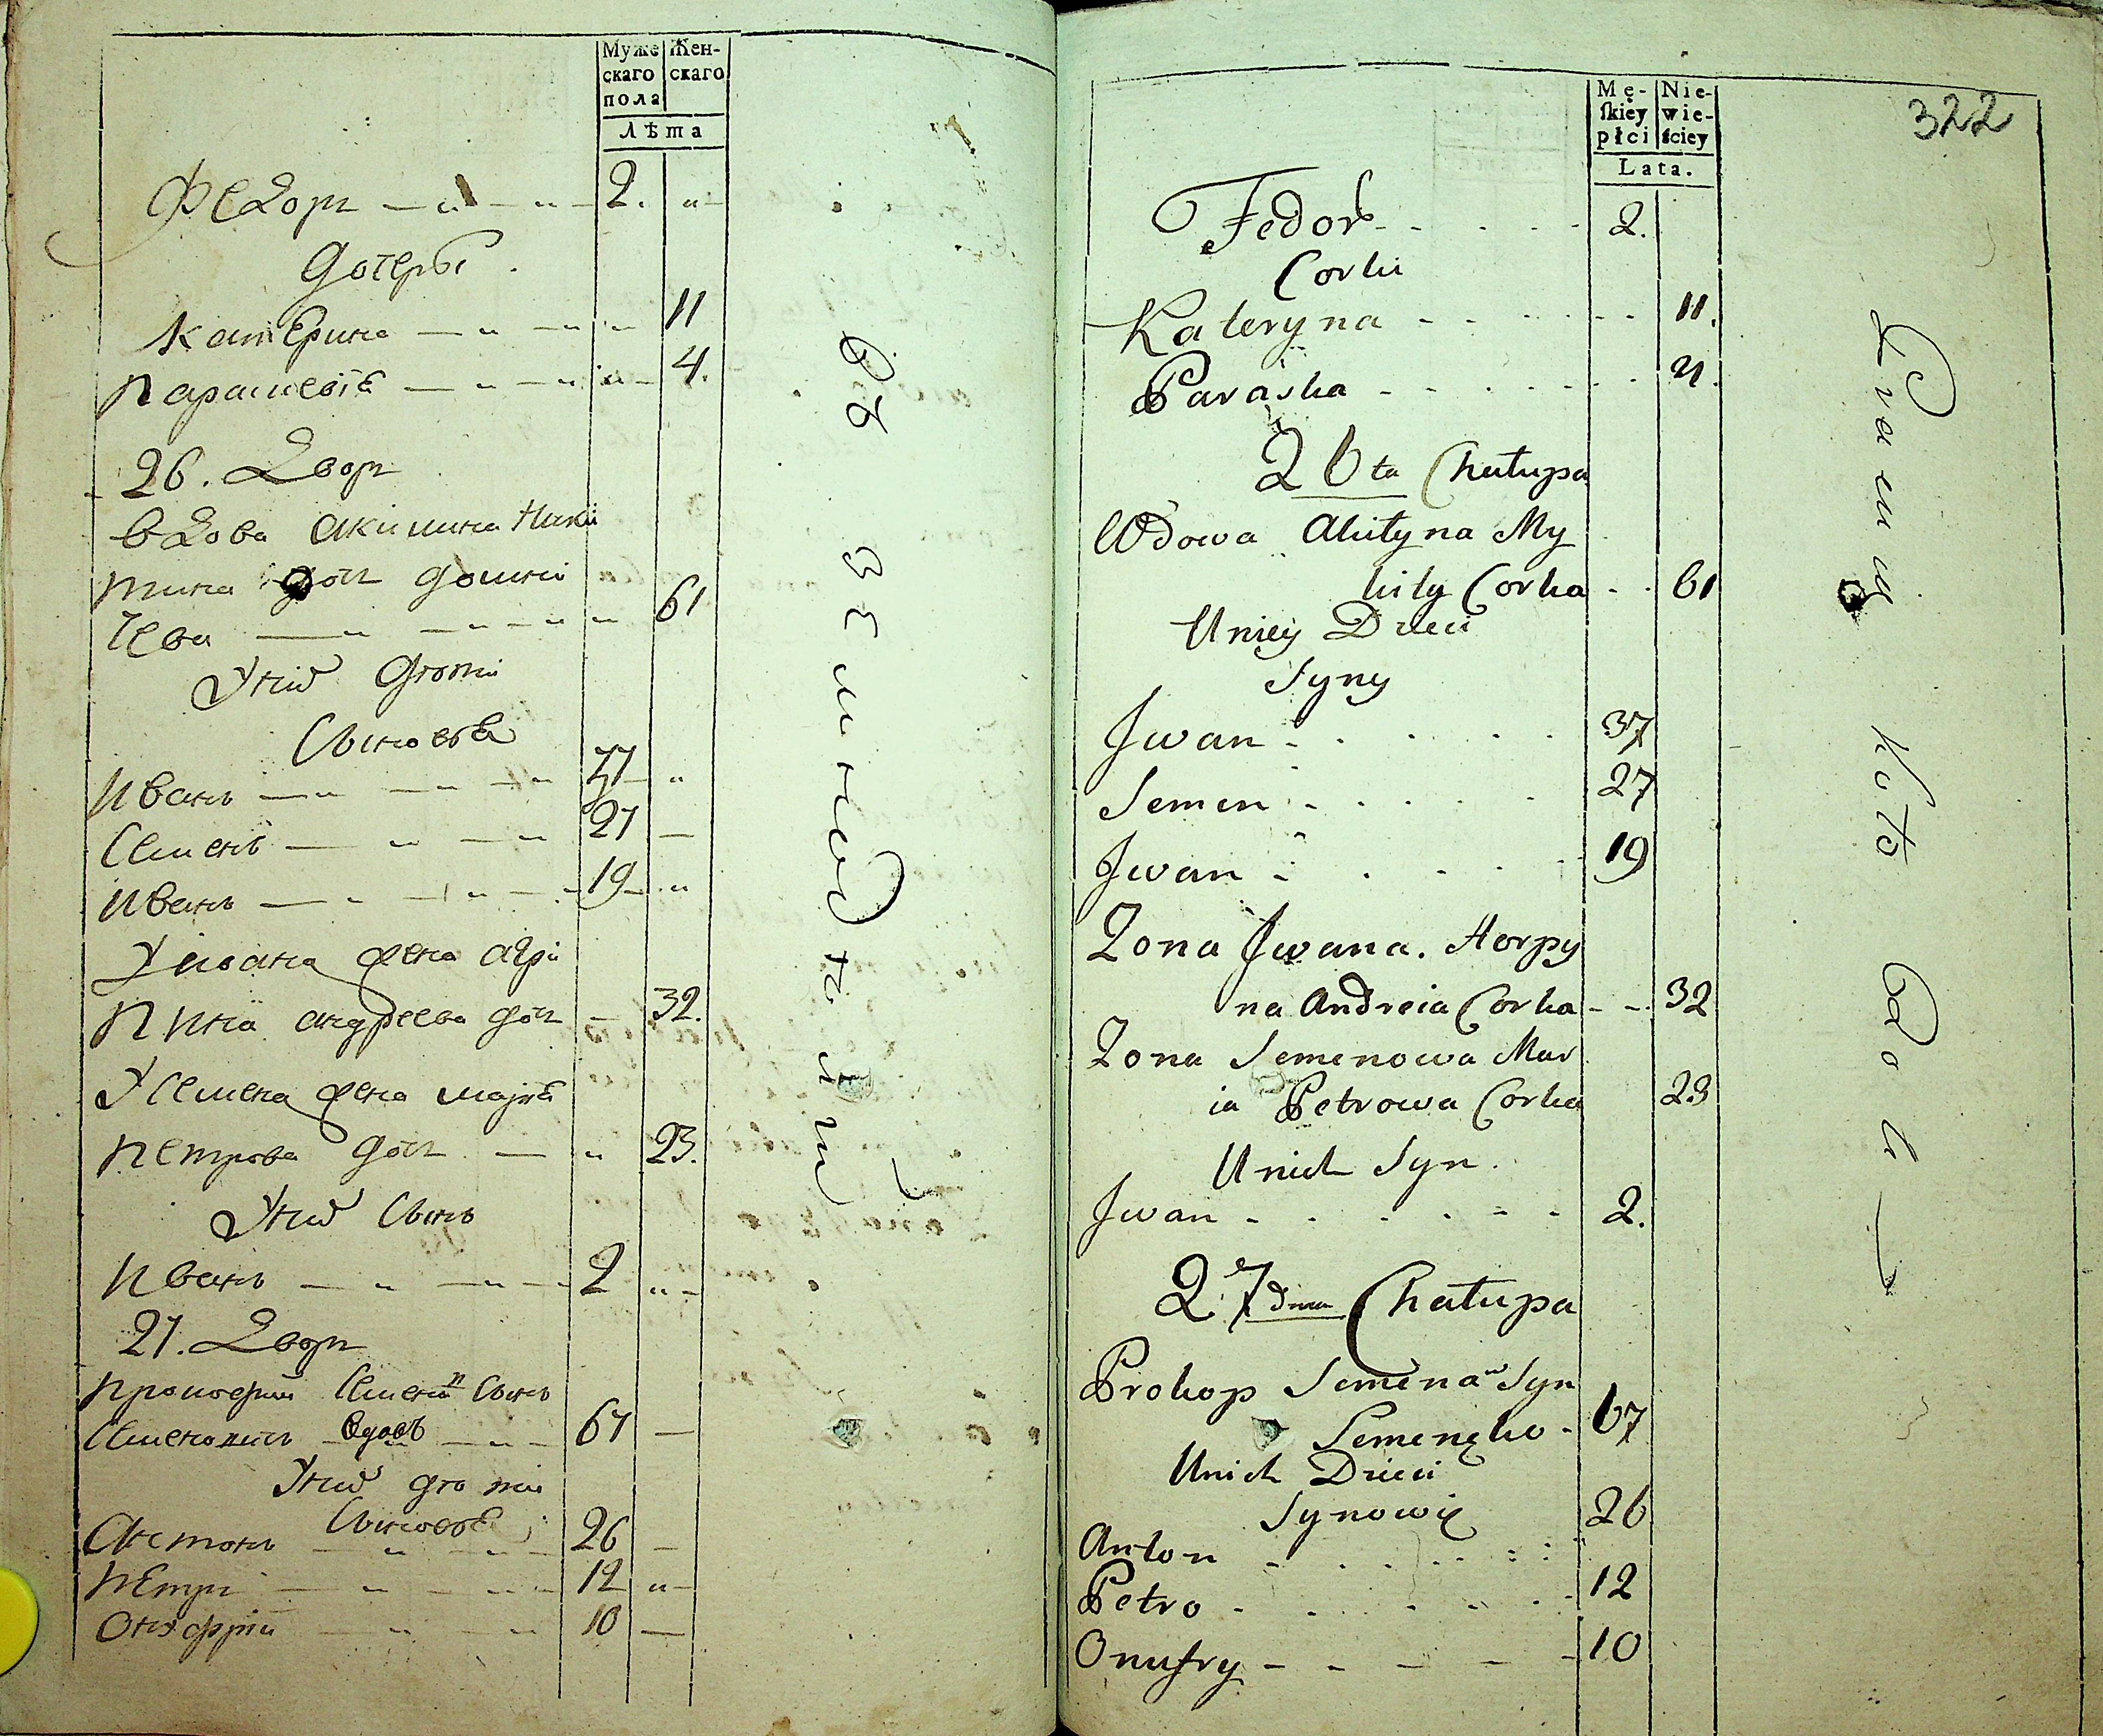 Муже
скаго
пола
Жен-
скаго
Лѣта
Федоръ 2.
дочеры
Катерина 11
Параскевія 4.
26. Дворъ
вдова Акилина Ники
тина дочь
чева 61
У нихъ дѣти
Сыновья
Иванъ 37
Семенъ 27
Иванъ 19
У Ивана жена Агри
пина Андреева дочь 32.
У Семена жена Марія
Петрова дочь 23.
У нихъ Сынъ
Иванъ 2
27. Дворъ
Прокофий Семеновъ Сынъ
вдовъ 67
У нихъ дѣти
Сыновья
Антонъ 26
Петръ 12
Онуфрій 10
Mę-
ſkiéy
płci
Nie-
wie-
ściey
Lata.
322
Fedor 2.
Corki
Kateryna 11.
Paraska 4.
26ta Chałupa
Wdowa Akilyna My
kity Corka 61
U niey Dzieci
Syny
Jwan 37
Semen 27
Jwan 19
Zona Jwana. Horpy
na Andreia Corka 32
Zona Semenowa Mar
ia Petrowa Corka 23
U nich Syn.
Jwan 2.
27dma Chałupa
Prokop Semena Syn
Semenęko 67
U nich Dzieci
Synowie
Anton 26
Petro 12
Onufry 10